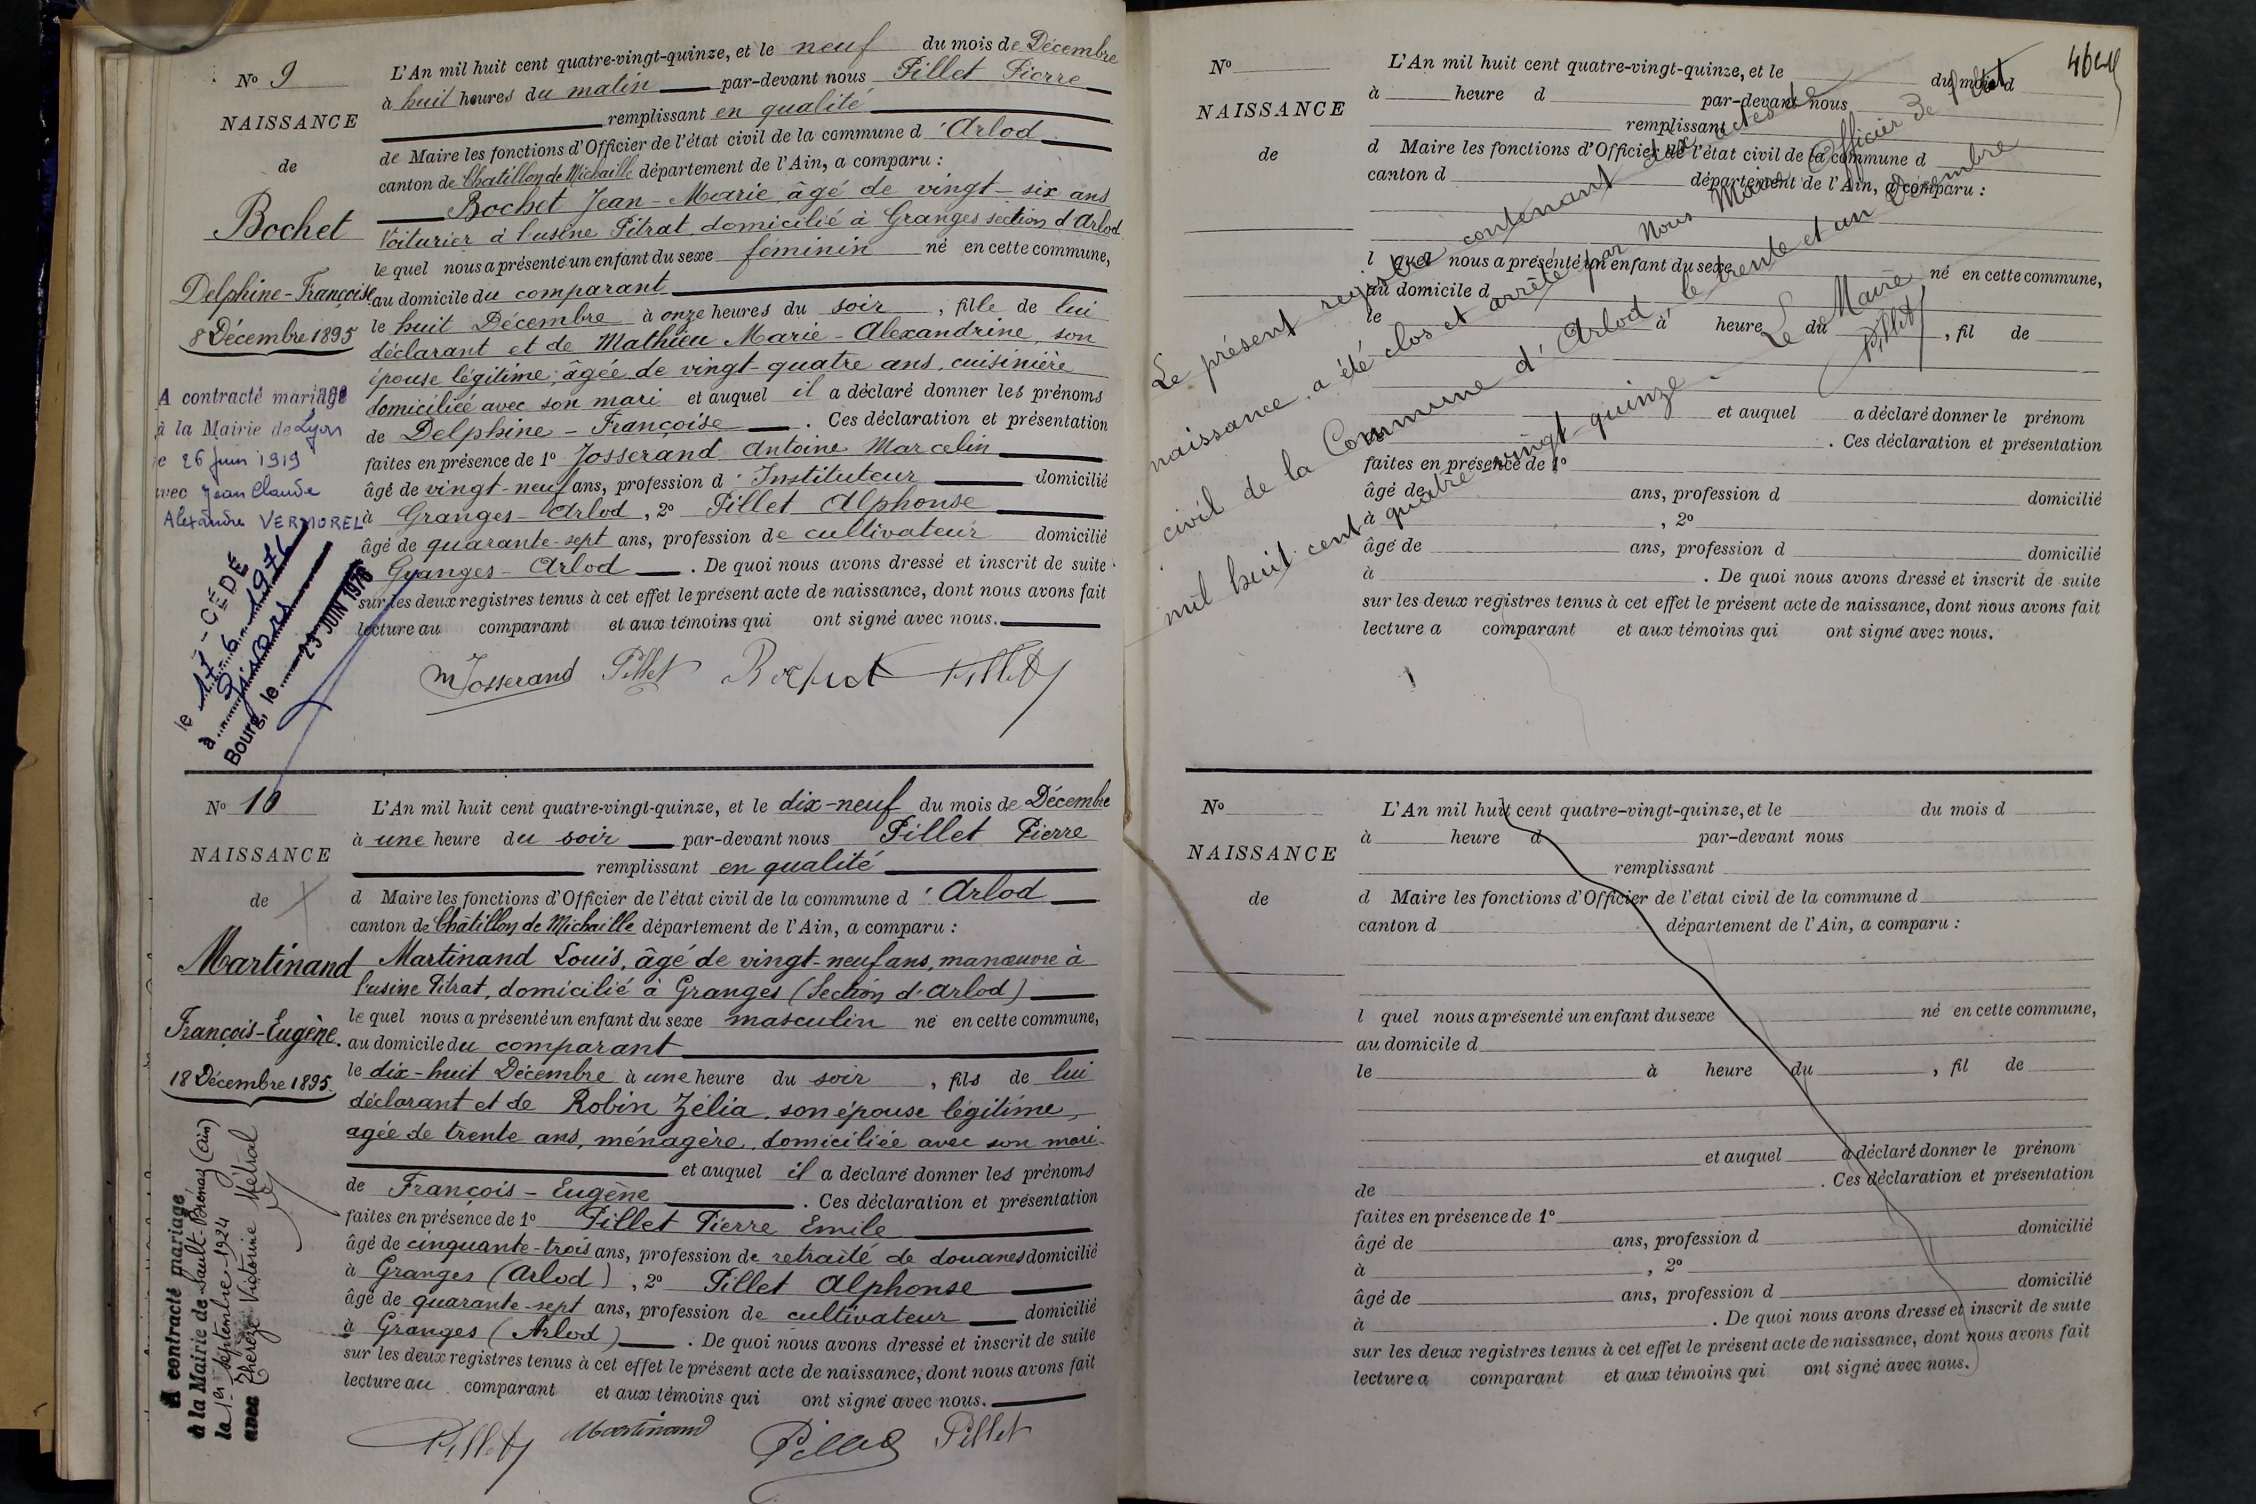 N° 9
NAISSANCE
de
Bochet
Delphine-Françoise
8 Décembre 1895
A contracté mariage
à la Mairie de Lyon
le 26 juin 1919
avec Jean Claude
Alexandre VERMOREL
DÉCÉDÉ
le 17-6-1976
à
Bourg, le 23 JUIN 1976
L'An mil huit cent quatre-vingt-quinze, et le neuf du mois de Décembre
à huit heures du matin par-devant nous Pillet Pierre
remplissant en qualité
de Maire les fonctions d'Officier de l'état civil de la commune d'Arlod
canton de Chatillon de Michaille département de l'Ain, a comparu :
Bochet Jean-Marie, âgé de vingt-six ans
Voiturier à l'usine Pitrat, domicilié à Granges section d'Arlod
le quel nous a présenté un enfant du sexe féminin né en cette commune,
au domicile du comparant
le huit Décembre à onze heures du soir, fille de lui
déclarant et de Mathieu Marie-Alexandrine, son
épouse légitime, âgée de vingt-quatre ans, cuisinière
domiciliée avec son mari et auquel il a déclaré donner les prénoms
de Delphine-Françoise. Ces déclaration et présentation
faites en présence de 1° Josserand Antoine Marcelin
âgé de vingt-neuf ans, profession d'Instituteur domicilié
à Granges-Arlod, 2° Pillet Alphonse
âgé de quarante-sept ans, profession de cultivateur domicilié
Granges-Arlod. De quoi nous avons dressé et inscrit de suite
sur les deux registres tenus à cet effet le présent acte de naissance, dont nous avons fait
lecture au comparant et aux témoins qui ont signé avec nous.
M Josserand Pillet Bochet Pillet
N° 10
NAISSANCE
de
Martinand
François-Eugène.
18 Décembre 1895
A contracté mariage
à la Mairie de Sault-Brénaz (Ain)
le 1er septembre 1924
avec Thérèze Victorine Métral
L'An mil huit cent quatre-vingt-quinze, et le dix-neuf du mois de Décembre
à une heure du soir par-devant nous Pillet Pierre
remplissant en qualité
d Maire les fonctions d'Officier de l'état civil de la commune d'Arlod
canton de Châtillon de Michaille département de l'Ain, a comparu :
Martinand Louis, âgé de vingt-neuf ans, manœuvre à
l'usine Pitrat, domicilié à Granges (Section d'Arlod)
le quel nous a présenté un enfant du sexe masculin né en cette commune,
au domicile du comparant
le dix-huit Décembre à une heure du soir, fils de lui
déclarant et de Robin Zélia, son épouse légitime,
agée de trente ans, ménagère, domiciliée avec son mari
et auquel il a déclaré donner les prénoms
de François-Eugène. Ces déclaration et présentation
faites en présence de 1° Pillet Pierre Emile
âgé de cinquante-trois ans, profession de retraité de douanes domicilié
à Granges (Arlod), 2° Pillet Alphonse
âgé de quarante-sept ans, profession de cultivateur domicilié
à Granges (Arlod). De quoi nous avons dressé et inscrit de suite
sur les deux registres tenus à cet effet le présent acte de naissance, dont nous avons fait
lecture au comparant et aux témoins qui ont signé avec nous.
Pillet Martinand Pillet Pillet
N°
NAISSANCE
de
L'An mil huit cent quatre-vingt-quinze, et le du mois d
à heure d par-devant nous
remplissant
d Maire les fonctions d'Officier de l'état civil de la commune d
canton d département de l'Ain, a comparu :
l quel nous a présenté un enfant du sexe né en cette commune,
au domicile d
le à heure du , fil de
et auquel a déclaré donner le prénom
. Ces déclaration et présentation
faites en présence de 1°
âgé de ans, profession d domicilié
à , 2°
âgé de ans, profession d domicilié
à . De quoi nous avons dressé et inscrit de suite
sur les deux registres tenus à cet effet le présent acte de naissance, dont nous avons fait
lecture a comparant et aux témoins qui ont signé avec nous.
Le présent registre contenant dix actes de
naissance, a été clos et arrêté par Nous Maire Officier de l'état
civil de la Commune d'Arlod le trente et un Décembre
mil huit cent quatre-vingt-quinze.
Le Maire
Pillet
N°
NAISSANCE
de
L'An mil huit cent quatre-vingt-quinze, et le du mois d
à heure d par-devant nous
remplissant
d Maire les fonctions d'Officier de l'état civil de la commune d
canton d département de l'Ain, a comparu :
l quel nous a présenté un enfant du sexe né en cette commune,
au domicile d
le à heure du , fil de
et auquel a déclaré donner le prénom
de . Ces déclaration et présentation
faites en présence de 1°
âgé de ans, profession d domicilié
à , 2°
âgé de ans, profession d domicilié
à . De quoi nous avons dressé et inscrit de suite
sur les deux registres tenus à cet effet le présent acte de naissance, dont nous avons fait
lecture a comparant et aux témoins qui ont signé avec nous.